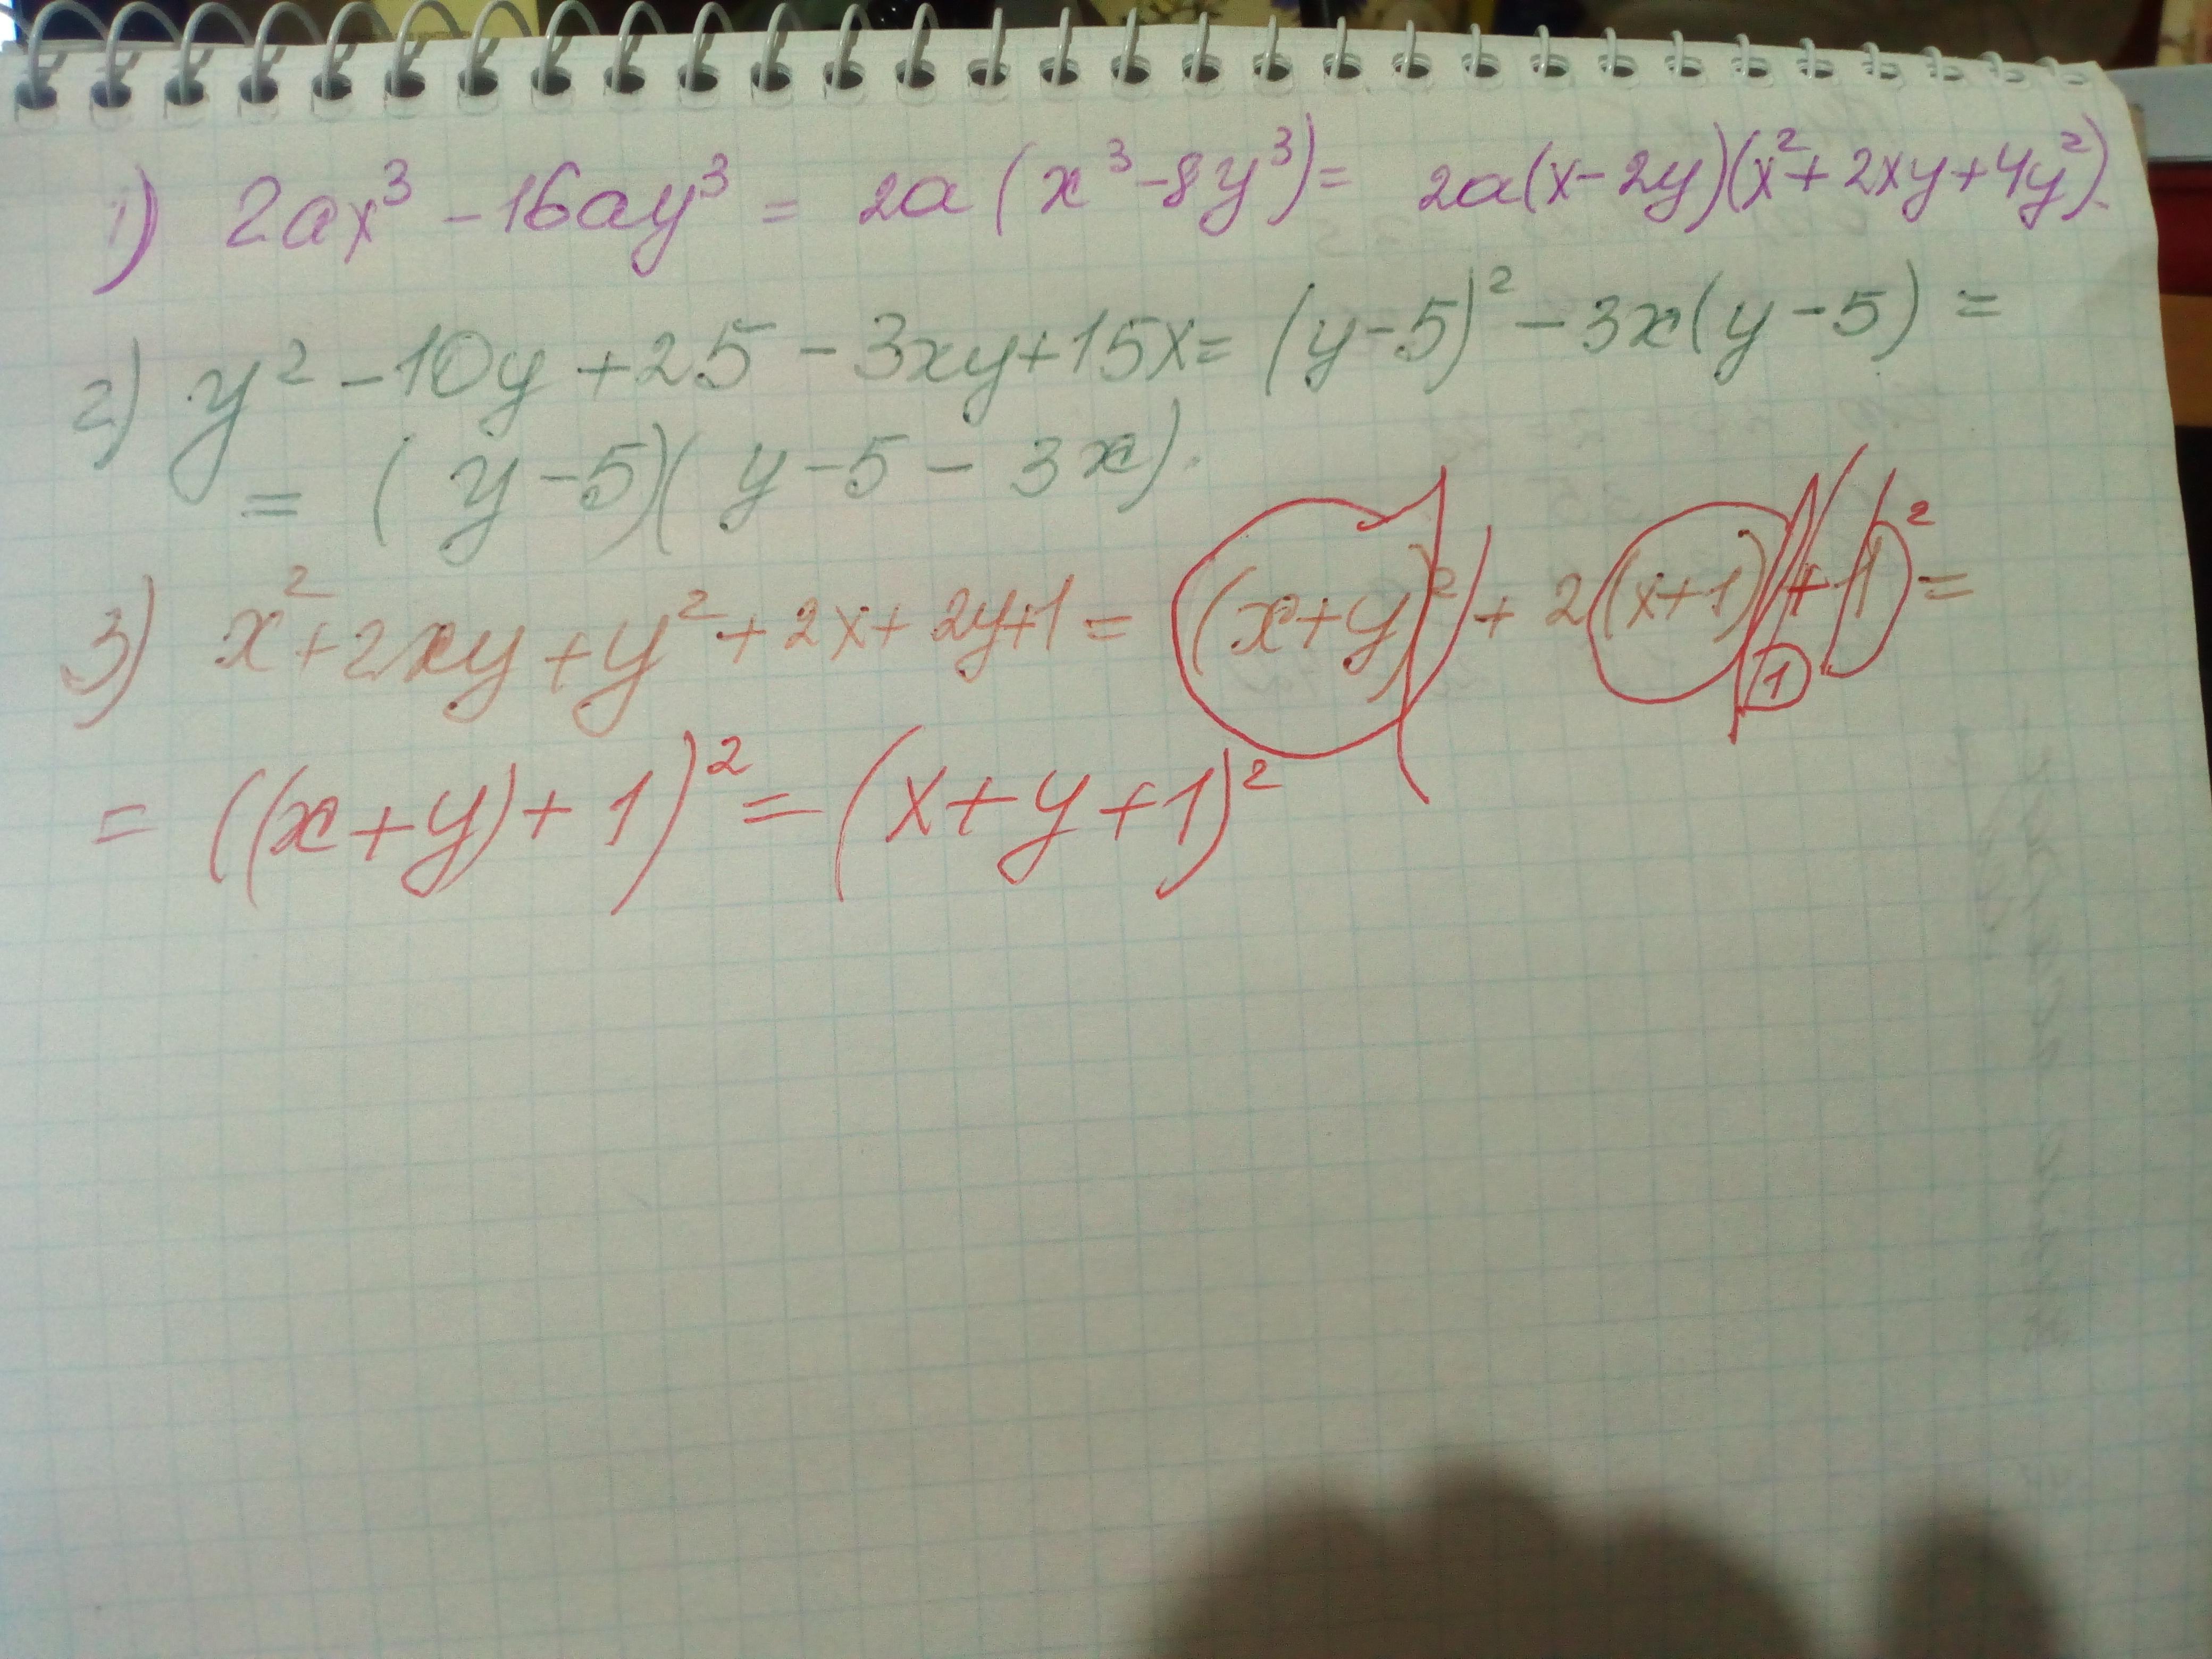 1) 2ax³ - 16ay³ = 2a(x³ - 8y³) = 2a(x - 2y)(x² + 2xy + 4y²).
2) y² - 10y + 25 - 3xy + 15x = (y - 5)² - 3x(y - 5) =
= (y - 5)(y - 5 - 3x).
3) x² + 2xy + y² + 2x + 2y + 1 = (x + y)² + 2(x + 1) + 1² =
1
= ((x + y) + 1)² = (x + y + 1)²